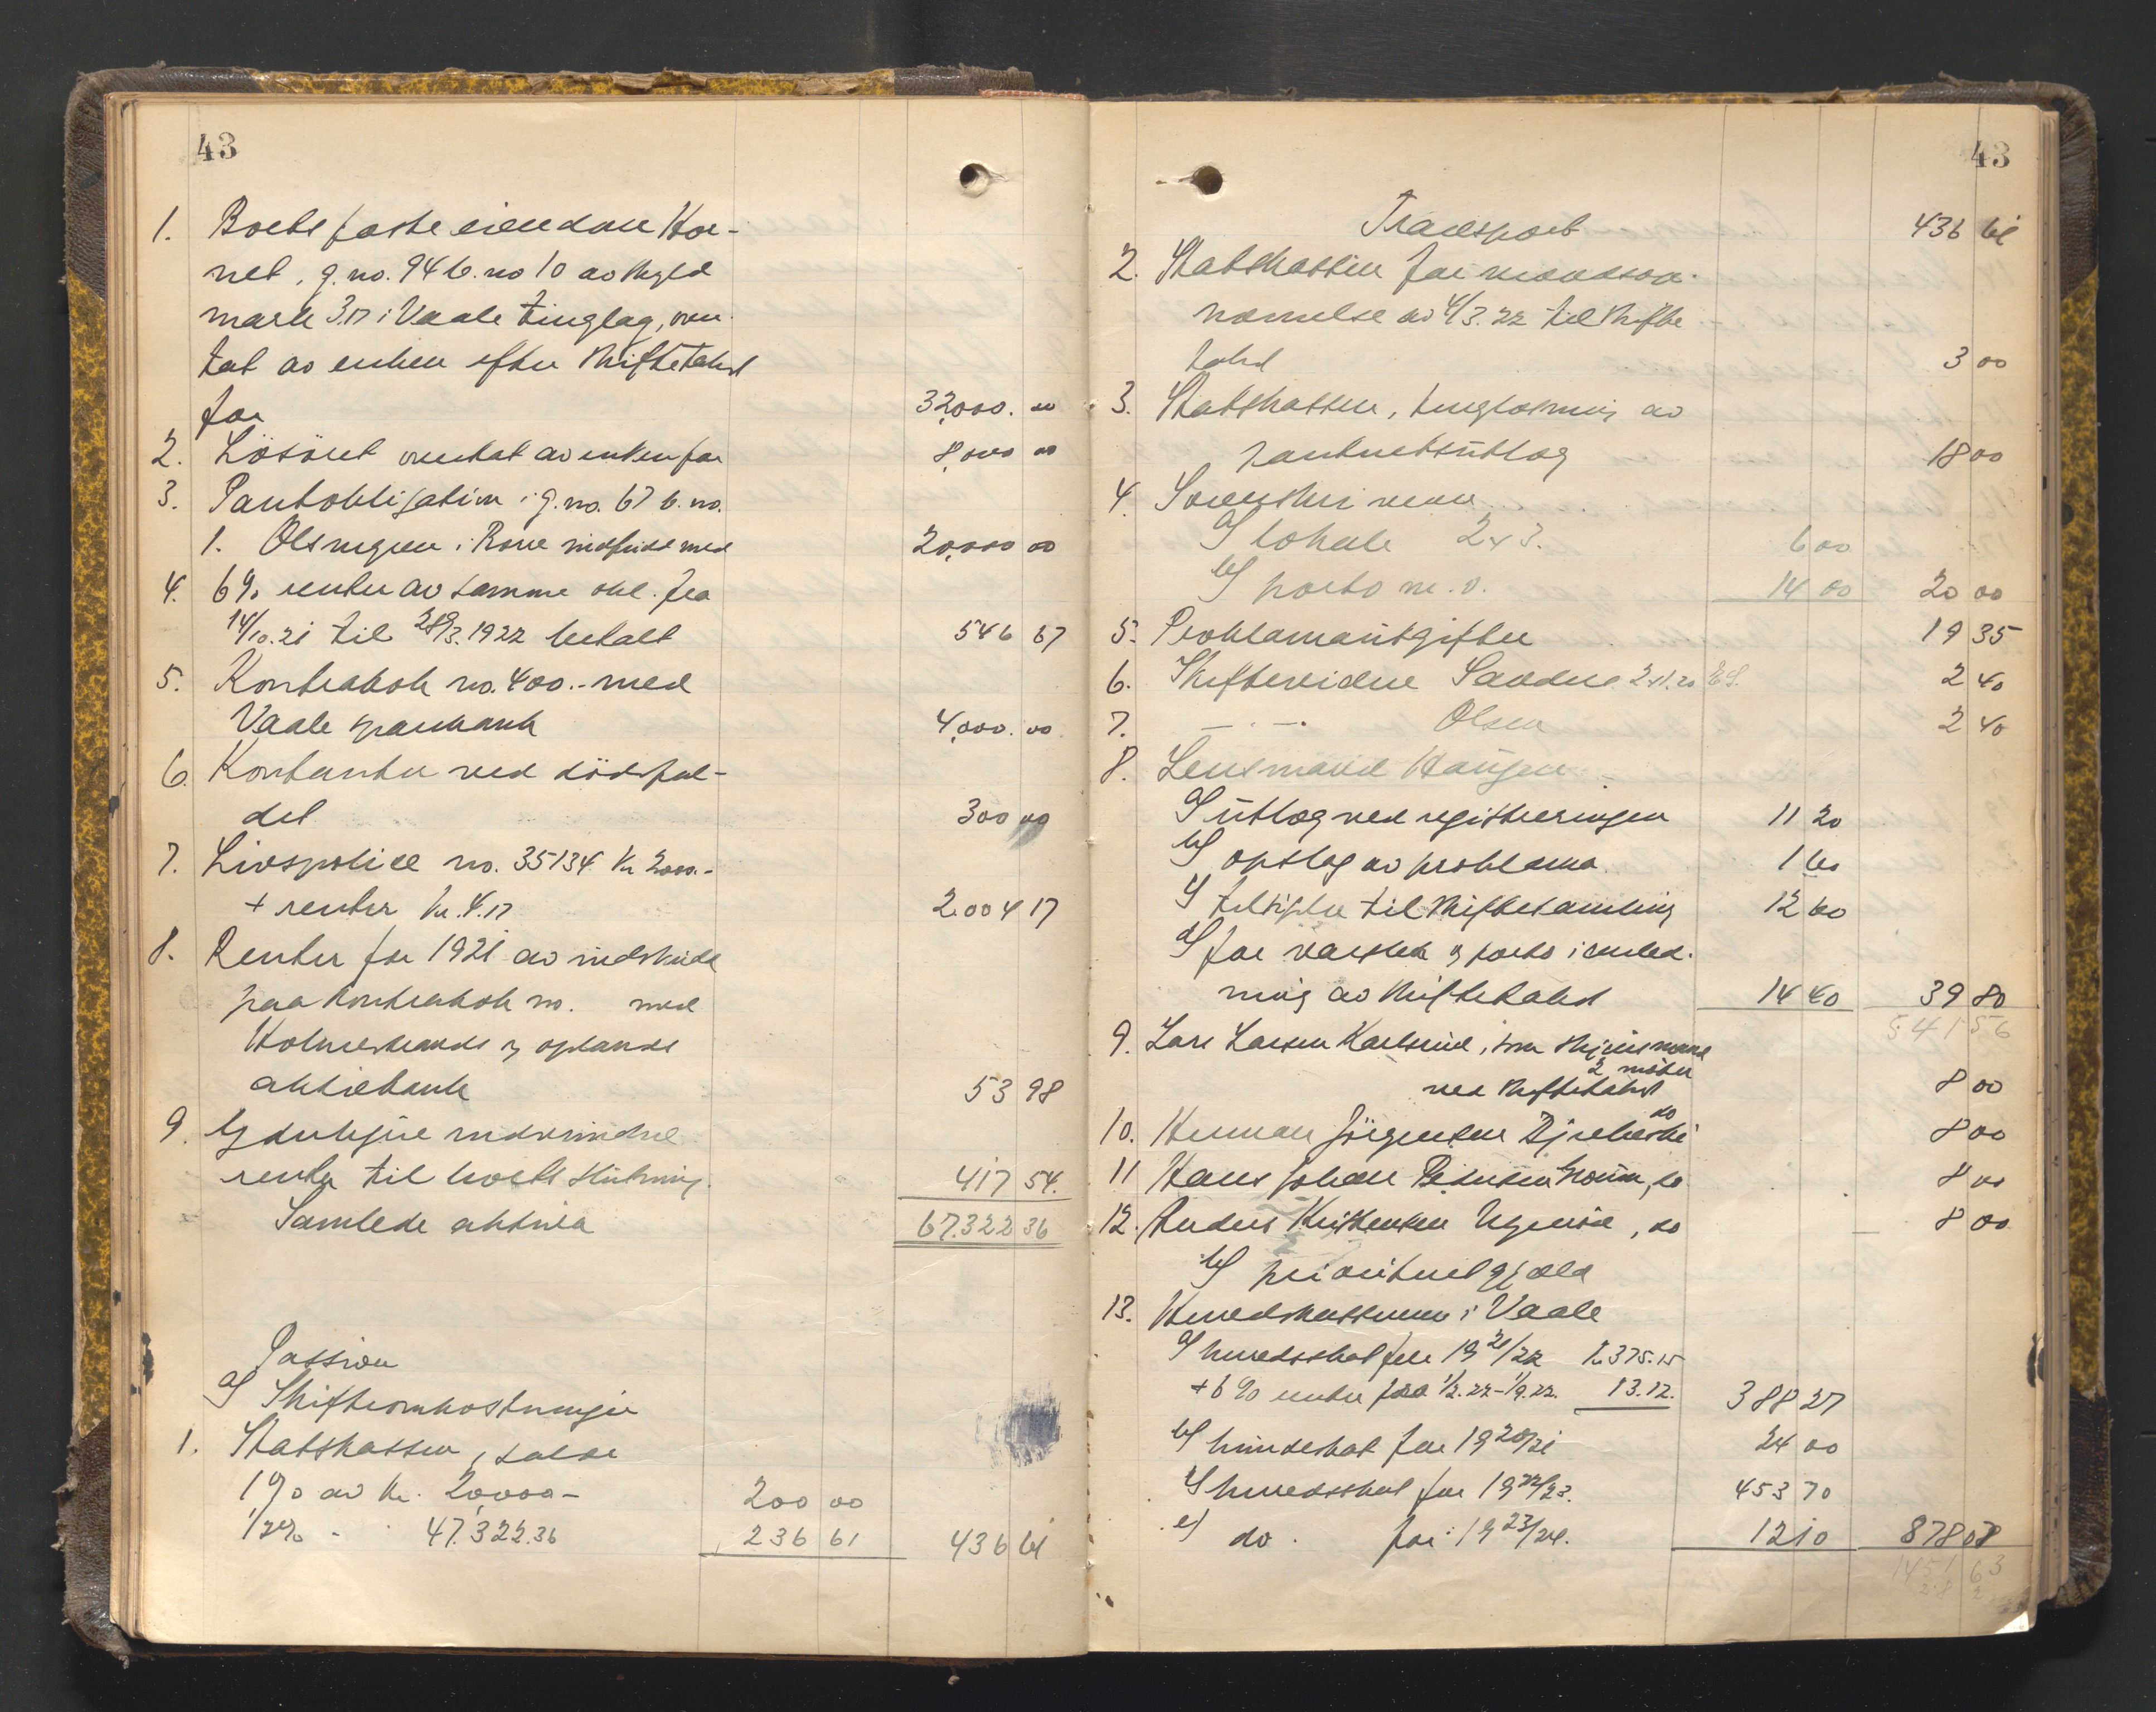 43
1. Boets faste eiendom Hor-
net, g. no. 94 b. no 10 av skyld
mark 3.17 i Vaale tinglag, over-
tat av enken efter skiftetakst
for 32,000. 00
2. Lösöret overtat av enken for 8,000 00
3. Pantobligation i g. no. 67 b. no.
1. Olsmyren i Rove indfridd med 20,000 00
4. 6% renter av samme obl. fra
14/10.21 til 28/3.1922 betalt 546 67
5. Kontrabok no. 400.- med
Vaale sparebank 4,000. 00
6. Kontanter ved dödsfal-
det 300 00
7. Livspolice no. 35134 kr 2000.-
+ renter kr. 4.17 2.004 17
8. Renter for 1921 av indskudd
paa kontrabok no. med
Holmestrands og oplands
aktiebank 53 98
9. Yderligere indvundne
renter til boets slutning 417 54.
Samlede aktiva 67.322 36
Passiva
a) Skifteomkostninger
1. Statskassen, salær
1% av kr. 20,000- 200 00
1/2% - 47.322.36 236 61 436 61
43
Transport 436 61
2. Statskassen for mandsop-
nævnelse av 4/3.22 til skifte-
takst 3 00
3. Statskassen, tinglæsning av
panteretsutlæg 18 00
4. Sorenskriveren
a) lokale 2 x 3. 6 00
b) porto m. v. 14 00 20 00
5. Proklamautgifter 19 35
6. Skiftevidne Sande 2 x 1.20 2 40
7. - . - . Olsen 2 40
8. Lensmand Haugen
a) utlæg ved registreringen 11 20
b) opslag av proklama 1 60
c) tilsigelse til skiftesamling 12 60
d) for varsler og porto i anled-
ning av skiftetakst 14 40 39 80
541 56
9. Lars Larsen Karlsrud, som skjönsmand
2 möter
ved skiftetakst 8 00
10. Herman Jörgensen Bjerkeski do 8 00
11 Hans Johan Pedersen, do 8 00
12. Anders Kristensen, do 8 00
b) prioritert gjæld
13. Herredskassereren i Vaale
a) herredsskat for 1921/22 kr. 375.15
+ 6% renter fra 1/2.22-1/9.22. 13.12. 388 27
b) hundeskat for 1920/21 24 00
c) herredsskat for 1922/23. 453 70
e) do. for 1923/24. 12 10 878 07
1451 63